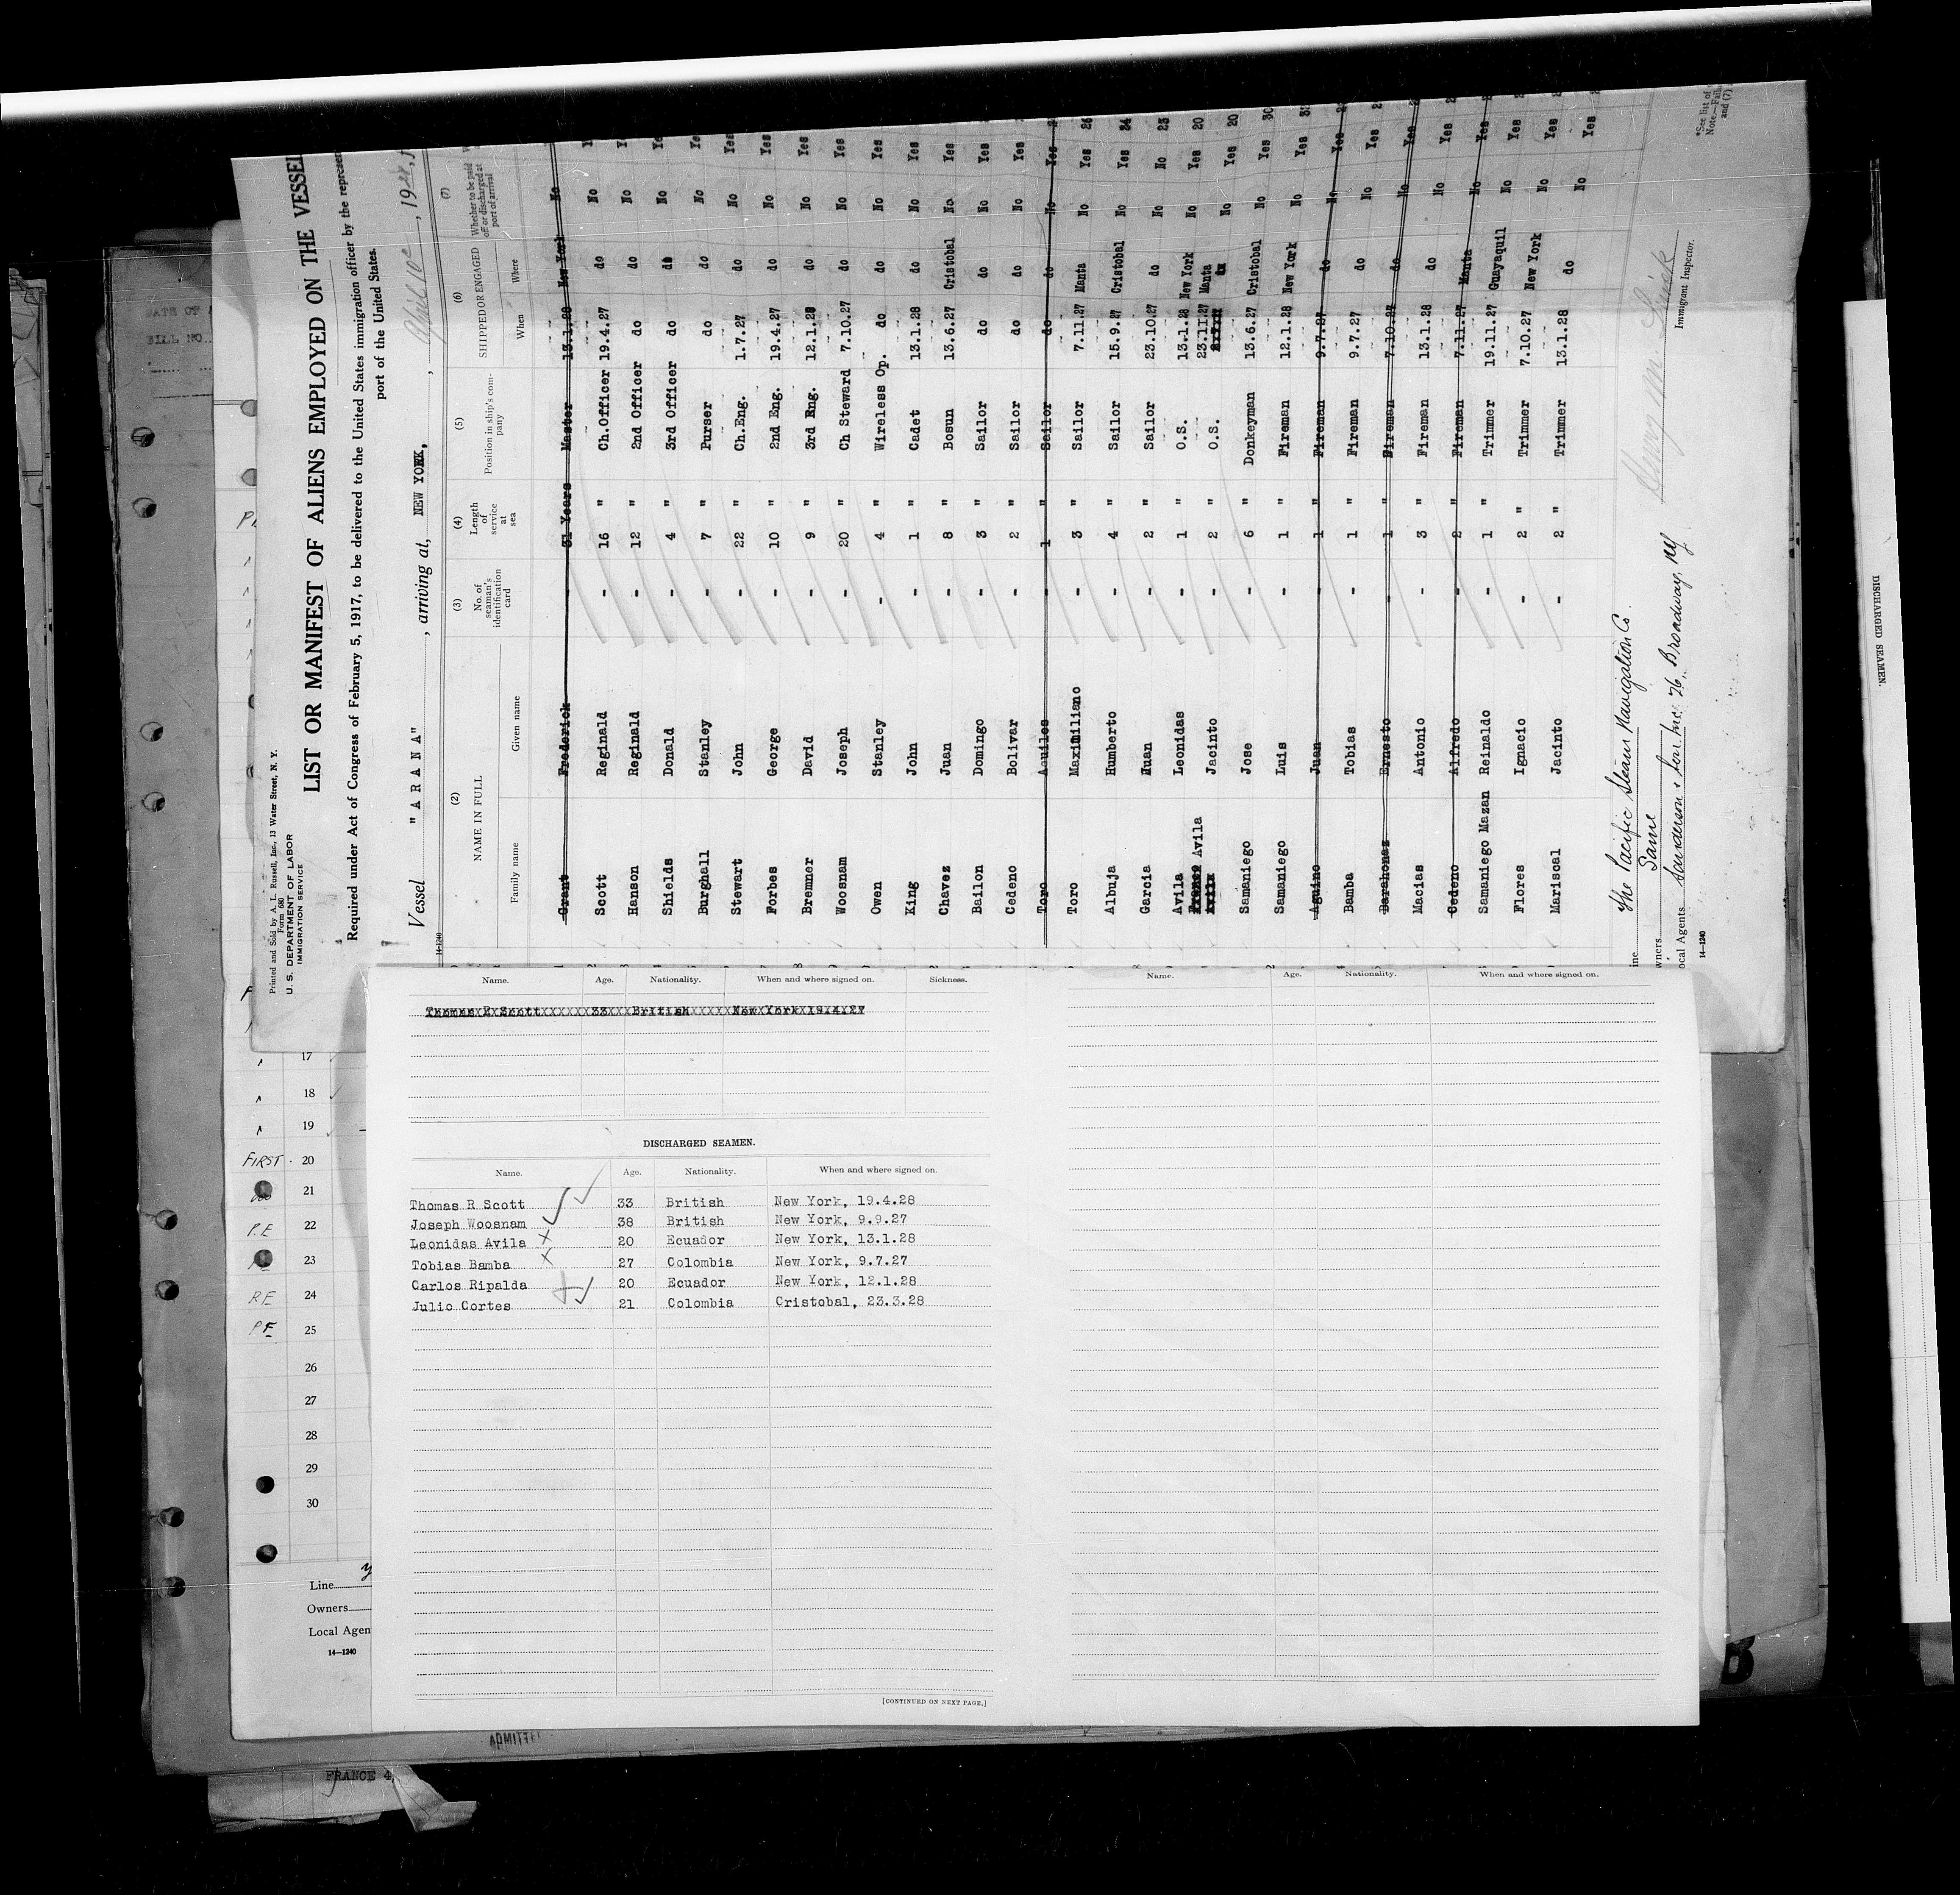 Printed and Sold by A. L. Russell, Inc., 13 Water Street, N. Y.
Form 680
U. S. DEPARTMENT OF LABOR
IMMIGRATION SERVICE
LIST OR MANIFEST OF ALIENS EMPLOYED ON THE VESSEL
Required under Act of Congress of February 5, 1917, to be delivered to the United States immigration officer by the represen
port of the United States.
Vessel "ARANA", arriving at, NEW YORK, April 10, 1928
14-1240
(2) (3) (4) (5) (6) (7)
NAME IN FULL No. of seaman's identification card Length of service at sea Position in ship's company SHIPPED OR ENGAGED Whether to be paid off or discharged at port of arrival
Family name Given name When Where
Grant Frederick - 31 Years Master 13.1.28 New York No
Scott Reginald - 16 " Ch.Officer 19.4.27 do No
Hanson Reginald - 12 " 2nd Officer do do No
Shields Donald - 4 " 3rd Officer do do No
Burghall Stanley - 7 " Purser do do No
Stewart John - 22 " Ch.Eng. 1.7.27 do No Yes
Forbes George - 10 " 2nd Eng. 19.4.27 do No Yes
Bremner David - 9 " 3rd Eng. 12.1.28 do No Yes
Woosnam Joseph - 20 " Ch Steward 7.10.27 do No Yes
Owen Stanley - 4 " Wireless Op. do do No Yes
King John - 1 " Cadet 13.1.28 do No Yes
Chavez Juan - 8 " Bosun 13.6.27 Cristobal No. Yes
Bailon Domingo - 3 " Sailor do do No Yes
Cedeno Bolivar - 2 " Sailor do do No Yes
Toro Aquiles - 1 " Sailor do do No Yes
Toro Maximiliano - 3 " Sailor 7.11.27 Manta No Yes 26
Albuja Humberto - 4 " Sailor 15.9.27 Cristobal No Yes 34
Garcia Huan - 2 " Sailor 23.10.27 do No No 23
Avila Leonidas - 1 " O.S. 13.1.28 New York No Yes 20
Avila Jacinto - 2 " O.S. 23.11.27 Manta No Yes 20
Samaniego Jose - 6 " Donkeyman 13.6.27 Cristobal No Yes 30
Samaniego Luis - 1 " Fireman 12.1.28 New York No Yes
Aguino Juan - 1 " Fireman 9.7.27 do No Yes
Bamba Tobias - 1 " Fireman 9.7.27 do No Yes
Barahonaz Ernesto - 1 " Fireman 7.10.27 do No Yes
Macias Antonio - 3 " Fireman 13.1.28 do No Yes
Cedeno Alfredo - 2 " Fireman 7.11.27 Manta No Yes
Samaniego Mazan Reinaldo - 1 " Trimmer 19.11.27 Guayaquil No Yes
Flores Ignacio - 2 " Trimmer 7.10.27 New York No Yes
Mariscal Jacinto - 2 " Trimmer 13.1.28 do No Yes
ine The Pacific Steam Navigation Co.
wners Same
ocal Agents Sanderson & Son Inc. 26, Broadway, NY
Immigrant Inspector.
14-1240
*See list of
Note.—Failu
and (7)
Name. Age. Nationality. When and where signed on. Sickness.
Thomas R Scott 33 British New York 19.4.27
DISCHARGED SEAMEN.
Name. Age. Nationality. When and where signed on.
Thomas R Scott 33 British New York, 19.4.28
Joseph Woosnam 38 British New York, 9.9.27
Leonidas Avila 20 Ecuador New York, 13.1.28
Tobias Bamba 27 Colombia New York, 9.7.27
Carlos Ripalda 20 Ecuador New York, 12.1.28
Julio Cortes 21 Colombia Cristobal, 23.3.28
[CONTINUED ON NEXT PAGE.]
Name. Age. Nationality. When and where signed on.
17
18
19
FIRST 20
21
P.E 22
23
RE 24
PF 25
26
27
28
29
30
Line
Owners
Local Agen
14—1240
ADMITTE
FRANCE 4
DISCHARGED SEAMEN.
B